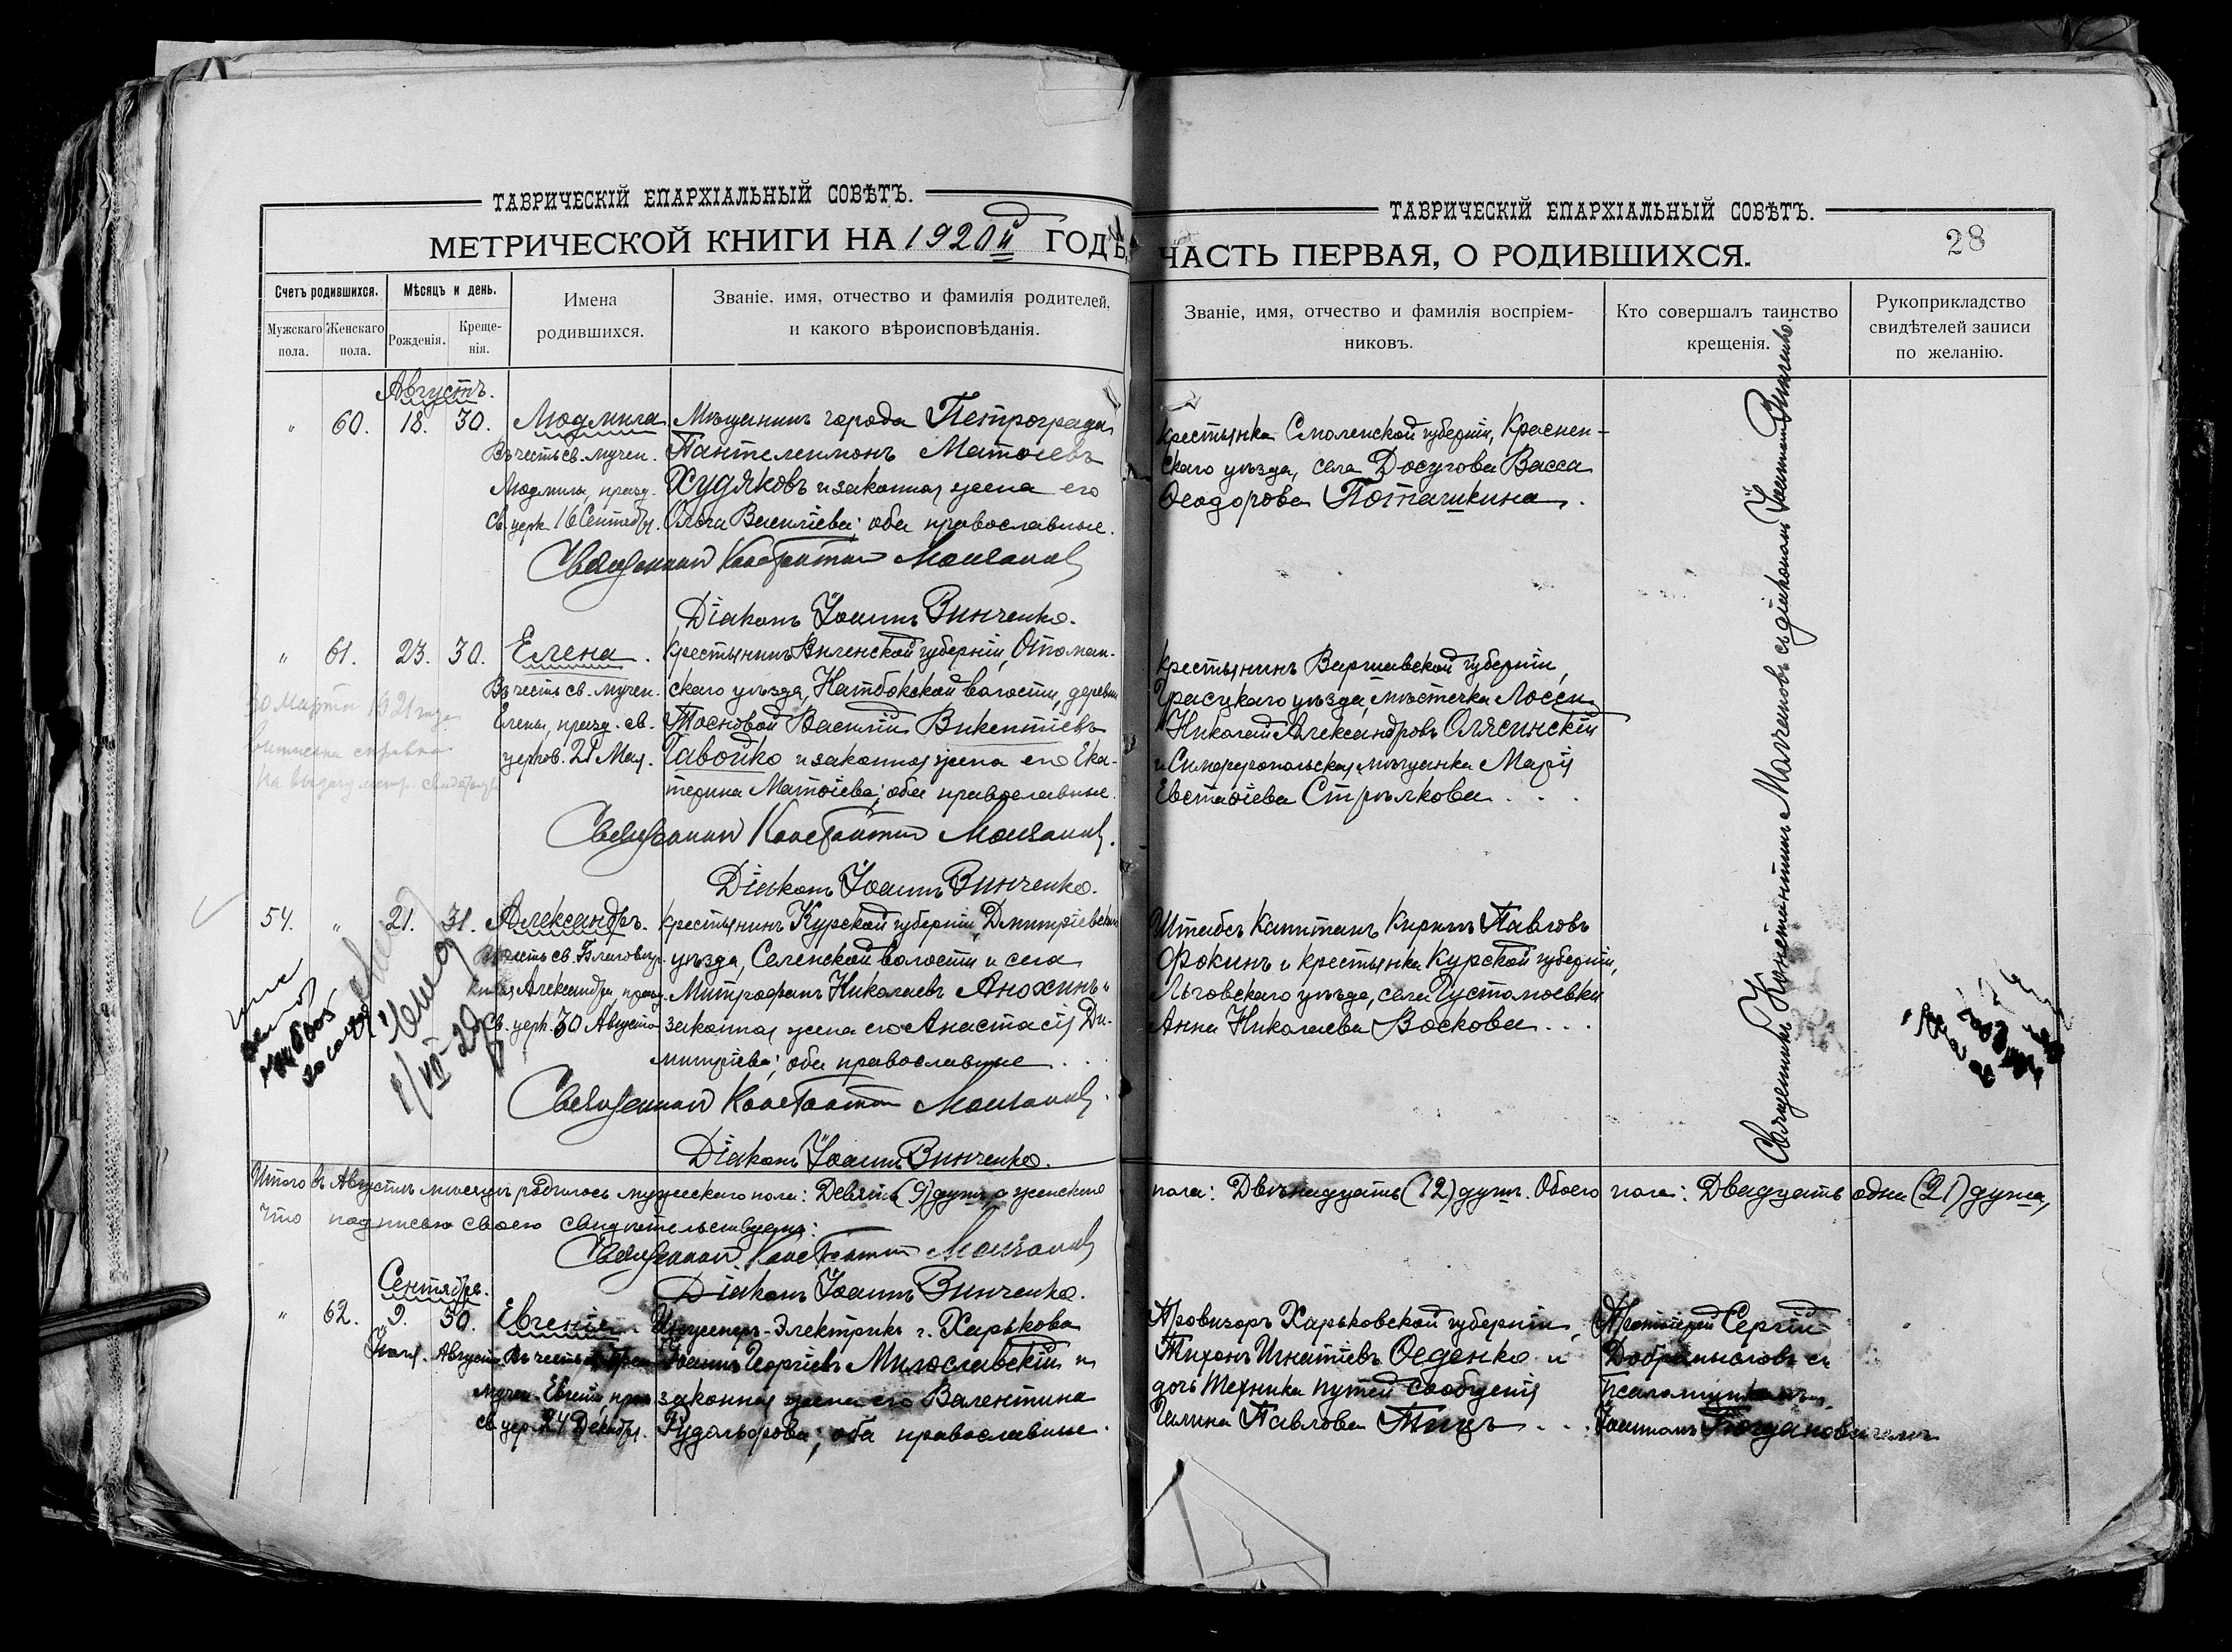 ТАВРИЧЕСКІЙ ЕПАРХІАЛЬНЫЙ СОВѢТЪ.
МЕТРИЧЕСКОЙ КНИГИ НА 1920й ГОДЪ,
Счетъ родившихся.
Мѣсяцъ и день.
Имена родившихся.
Званіе, имя, отчество и фамилія родителей,
и какого вѣроисповѣданія.
Мужскаго пола.
Женскаго пола.
Рожденія.
Крещенія.
Августъ.
" 60. 18. 30. Людмила Мѣщанинъ города Петрограда
Въ честь св. мучен. Пантелеимонъ Матѳіевъ
Людмилы, празд. Худяковъ и законная жена его
Св. церк. 16 Сентябр. Ольга Василіева; оба православные.
Священникъ Константинъ Молчановъ
Діаконъ Іоаннъ Винченко.
" 61. 23. 30. Елена. Крестьянинъ Виленской губерніи, Ошмян-
Въ честь св. мучен. скаго уѣзда, волости, деревни
Елены, празд. св. Василій Викентіевъ
церков. 21 Мая. Гавойко и законная жена его Ека-
терина Матѳіева; оба православные.
30 Марта 1921 года
справка
Священникъ Константинъ Молчановъ.
Діаконъ Іоаннъ Винченко.
54. " 21. 31. Александръ. Крестьянинъ Курской губерніи, Дмитріевскаго
Въ честь св. Благовѣр. уѣзда, Селенской волости и села
Князя Александра, празд. Митрофанъ Николаевъ Анохинъ и
Св. церк. 30 Августа законная жена его Анастасія Ди-
митріева; оба православные . .
Священникъ Константинъ Молчановъ.
Діаконъ Іоаннъ Винченко.
Итого въ Августѣ мѣсяцѣ родилось мужескаго пола: Девять (9) душъ, а женскаго
что подписью своею свидѣтельствуемъ:
Священникъ Константинъ Молчановъ
Діаконъ Іоаннъ Винченко.
Сентябрь.
" 62. 9. 30. Евгенія. Инженеръ-Электрикъ г. Харькова
Іюля. Августа Въ честь Іоаннъ Георгіевъ Милославскій и
Мучен. Евгеніи, празд. законная жена его Валентина
св. цер. 24 Декабр. Рудольфова; оба православные.
ТАВРИЧЕСКІЙ ЕПАРХІАЛЬНЫЙ СОВѢТЪ.
ЧАСТЬ ПЕРВАЯ, О РОДИВШИХСЯ.
28
Званіе, имя, отчество и фамилія воспріем-
никовъ.
Кто совершалъ таинство
крещенія.
Рукоприкладство
свидѣтелей записи
по желанію.
Крестьянка Смоленской губерніи, Краснен-
скаго уѣзда, села Досугова Васса
Ѳеодорова Поташкина.
Крестьянинъ Варшавской губерніи,
уѣзда, мѣстечка
Николай Александровъ Олясинскій
и Симферопольская мѣщанка Марія
Евстаѳіева Стрѣлкова . . .
Штабсъ Капитанъ Кириллъ Павловъ
Фокинъ и крестьянка Курской губерніи,
Льговскаго уѣзда, села Густомоевки
Анна Николаева Воскова . . .
Священникъ Константинъ Молчановъ съ діакономъ Іоанномъ Винченко.
пола: Двѣнадцать (12) душъ. Обоего пола: Двадцать одна (21) душа,
Провизоръ Харьковской губерніи,
Тихонъ Игнатіевъ Ѳеденко и
дочь Техника путей сообщенія
Галина Павлова Тицъ . . .
Протоіерей Сергій
Добромысловъ съ
псаломщикомъ
Іоанномъ Богдановичемъ